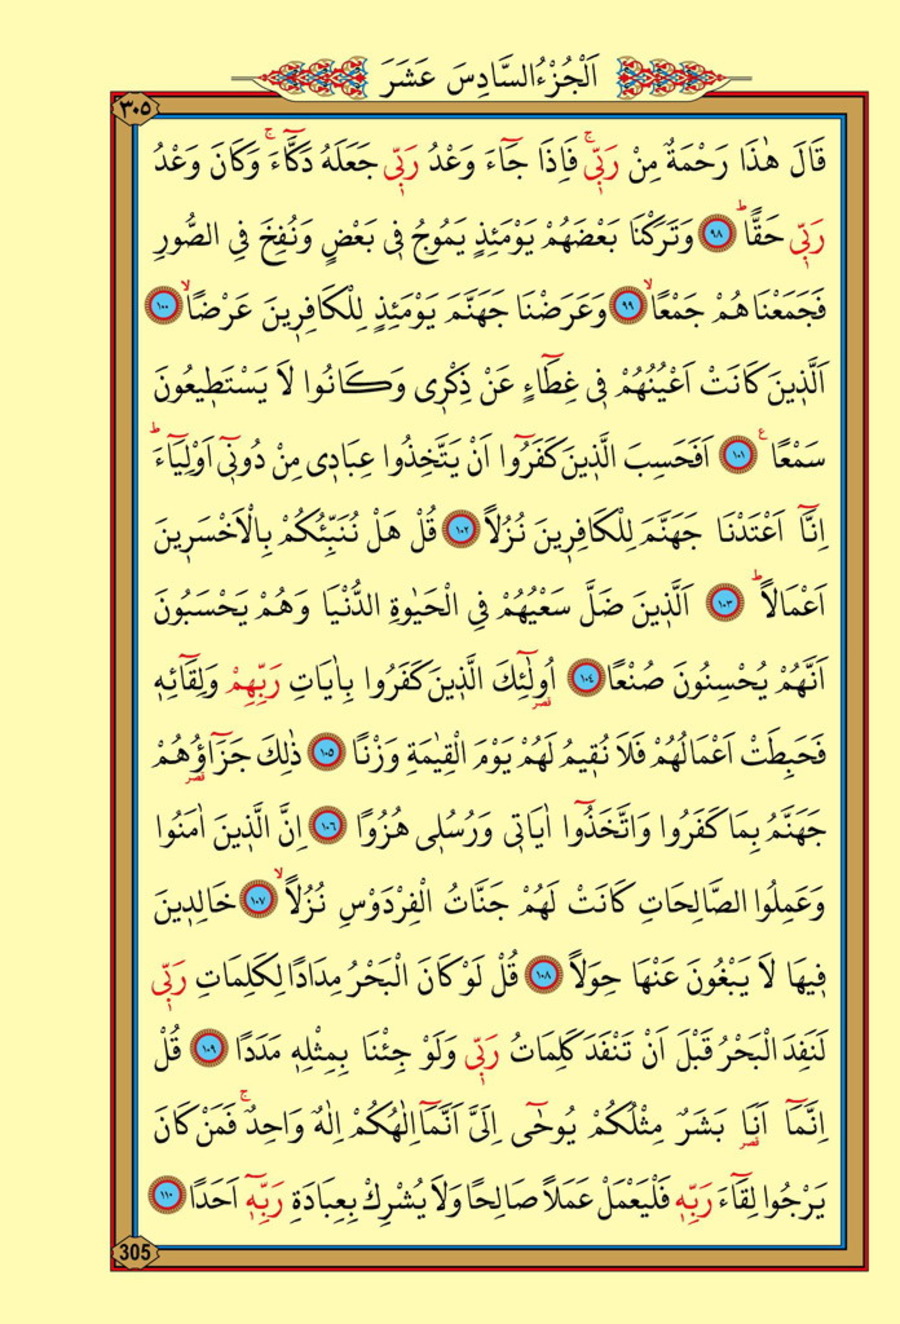 اَلْجُزْءُ السَّادِسَ عَشَرَ
٣٠٥
قَالَ هٰذَا رَحْمَةٌ مِنْ رَبّ۪يۚ فَاِذَا جَٓاءَ وَعْدُ رَبّ۪ي جَعَلَهُ دَكَّٓاءَۚ وَكَانَ وَعْدُ
رَبّ۪ي حَقًّاۜ ٩٨ وَتَرَكْنَا بَعْضَهُمْ يَوْمَئِذٍ يَمُوجُ ف۪ي بَعْضٍ وَنُفِخَ فِي الصُّورِ
فَجَمَعْنَاهُمْ جَمْعًاۙ ٩٩ وَعَرَضْنَا جَهَنَّمَ يَوْمَئِذٍ لِلْكَافِر۪ينَ عَرْضًاۙ ١٠٠
اَلَّذ۪ينَ كَانَتْ اَعْيُنُهُمْ ف۪ي غِطَٓاءٍ عَنْ ذِكْر۪ي وَكَانُوا لَا يَسْتَط۪يعُونَ
سَمْعًا ع ١٠١ اَفَحَسِبَ الَّذ۪ينَ كَفَرُٓوا اَنْ يَتَّخِذُوا عِبَاد۪ي مِنْ دُون۪ٓي اَوْلِيَٓاءَۜ
اِنَّٓا اَعْتَدْنَا جَهَنَّمَ لِلْكَافِر۪ينَ نُزُلًا ١٠٢ قُلْ هَلْ نُنَبِّئُكُمْ بِالْاَخْسَر۪ينَ
اَعْمَالًاۜ ١٠٣ اَلَّذ۪ينَ ضَلَّ سَعْيُهُمْ فِي الْحَيٰوةِ الدُّنْيَا وَهُمْ يَحْسَبُونَ
اَنَّهُمْ يُحْسِنُونَ صُنْعًا ١٠٤ اُو۬لٰٓئِكَ الَّذ۪ينَ كَفَرُوا بِاٰيَاتِ رَبِّهِمْ وَلِقَٓائِه۪
فَحَبِطَتْ اَعْمَالُهُمْ فَلَا نُق۪يمُ لَهُمْ يَوْمَ الْقِيٰمَةِ وَزْنًا ١٠٥ ذٰلِكَ جَزَٓاؤُ۬هُمْ
جَهَنَّمُ بِمَا كَفَرُوا وَاتَّخَذُٓوا اٰيَات۪ي وَرُسُل۪ي هُزُوًا ١٠٦ اِنَّ الَّذ۪ينَ اٰمَنُوا
وَعَمِلُوا الصَّالِحَاتِ كَانَتْ لَهُمْ جَنَّاتُ الْفِرْدَوْسِ نُزُلًاۙ ١٠٧ خَالِد۪ينَ
ف۪يهَا لَا يَبْغُونَ عَنْهَا حِوَلًا ١٠٨ قُلْ لَوْ كَانَ الْبَحْرُ مِدَادًا لِكَلِمَاتِ رَبّ۪ي
لَنَفِدَ الْبَحْرُ قَبْلَ اَنْ تَنْفَدَ كَلِمَاتُ رَبّ۪ي وَلَوْ جِئْنَا بِمِثْلِه۪ مَدَدًا ١٠٩ قُلْ
اِنَّمَٓا اَنَا۬ بَشَرٌ مِثْلُكُمْ يُوحٰٓى اِلَيَّ اَنَّمَٓا اِلٰهُكُمْ اِلٰهٌ وَاحِدٌۚ فَمَنْ كَانَ
يَرْجُوا لِقَٓاءَ رَبِّه۪ فَلْيَعْمَلْ عَمَلًا صَالِحًا وَلَا يُشْرِكْ بِعِبَادَةِ رَبِّه۪ٓ اَحَدًا ١١٠
305